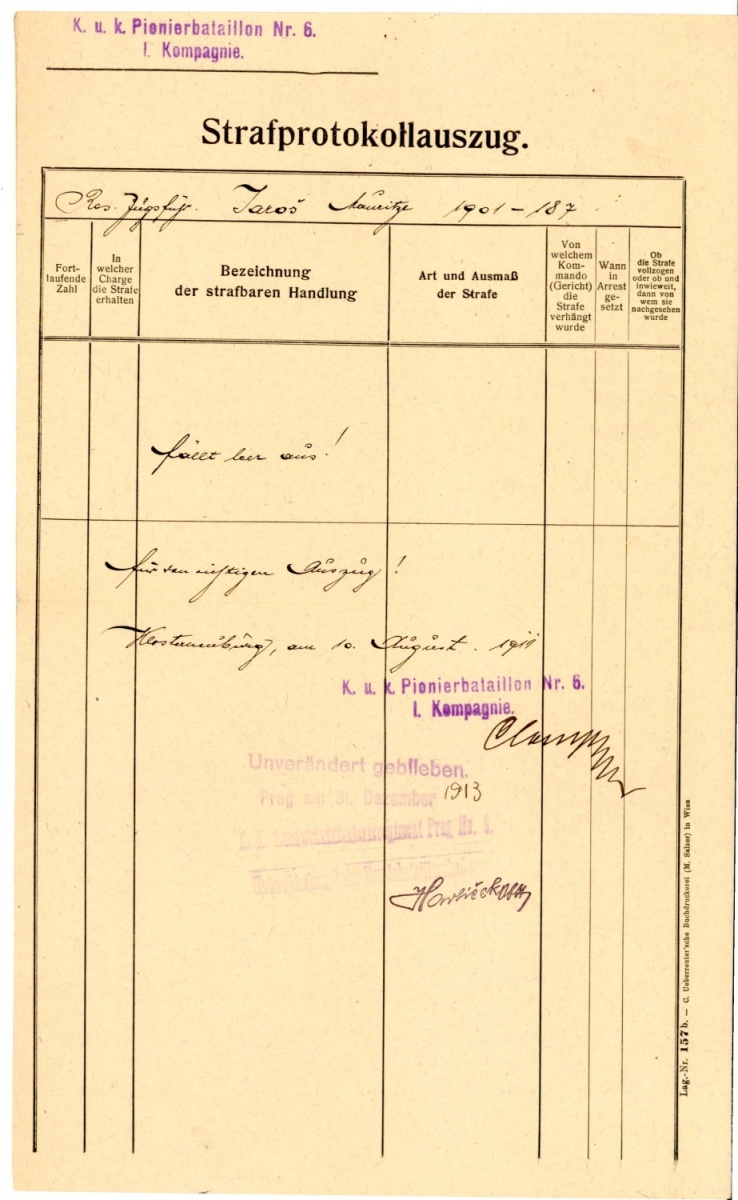 K. u. k. Pionierbataillon Nr. 6.
I. Kompagnie.
Strafprotokollauszug.
Res. Zugsfhr. Jaroš Mauritze 1901 – 187
Fort-
laufende
Zahl
In
welcher
Charge
die Strafe
erhalten
Bezeichnung
der strafbaren Handlung
Art und Ausmaß
der Strafe
Von
welchem
Kom-
mando
(Gericht)
die
Strafe
verhängt
wurde
Wann
in
Arrest
ge-
setzt
Ob
die Strafe
vollzogen
oder ob und
inwieweit,
dann von
wem sie
nachgesehen
wurde
fällt leer aus!
für den richtigen Auszug!
Klosterneuburg, am 10. August 1911
K. u. k. Pionierbataillon Nr. 6.
I. Kompagnie.
Unverändert geblieben.
Prag am 31. Dezember 1913
K. k. Landwehrinfanterieregiment Prag No. 8.
Havlíček
Lag.-Nr. 157b. — C. Ueberreuter'sche Buchdruckerei (M. Salzer) in Wien